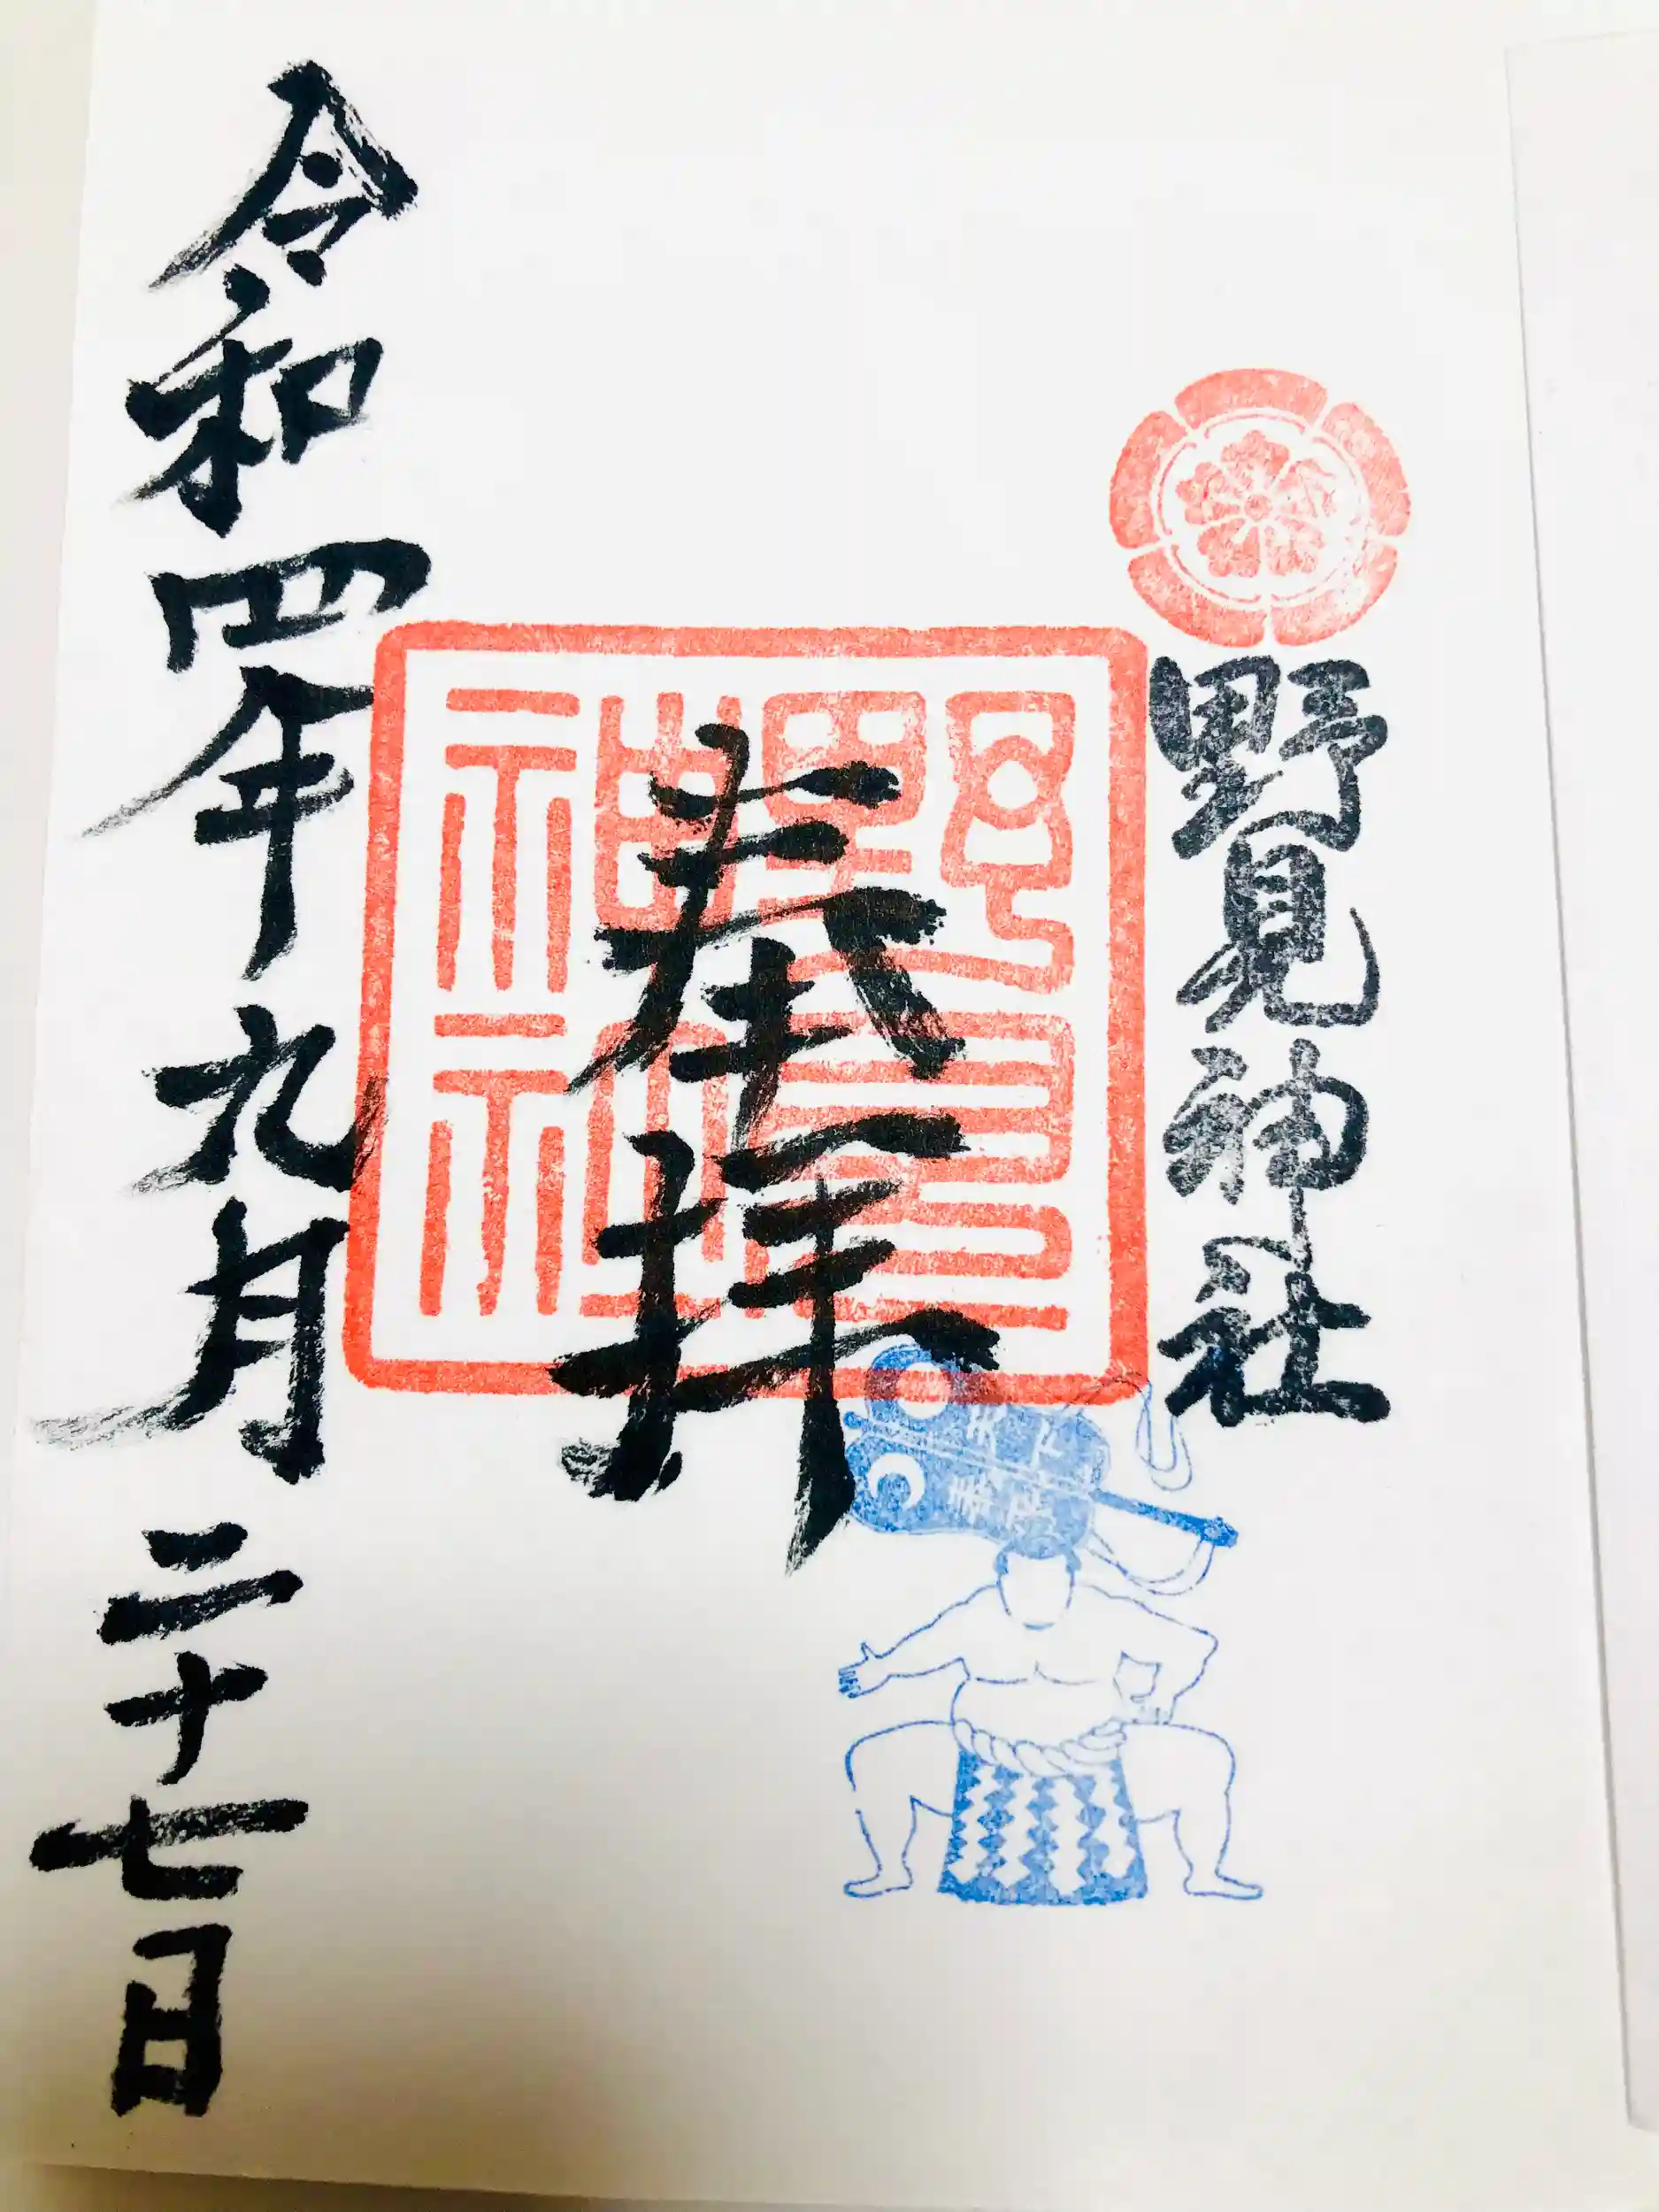 野見神社
奉拝
野見
神社
天下泰平
令和四年九月二十七日